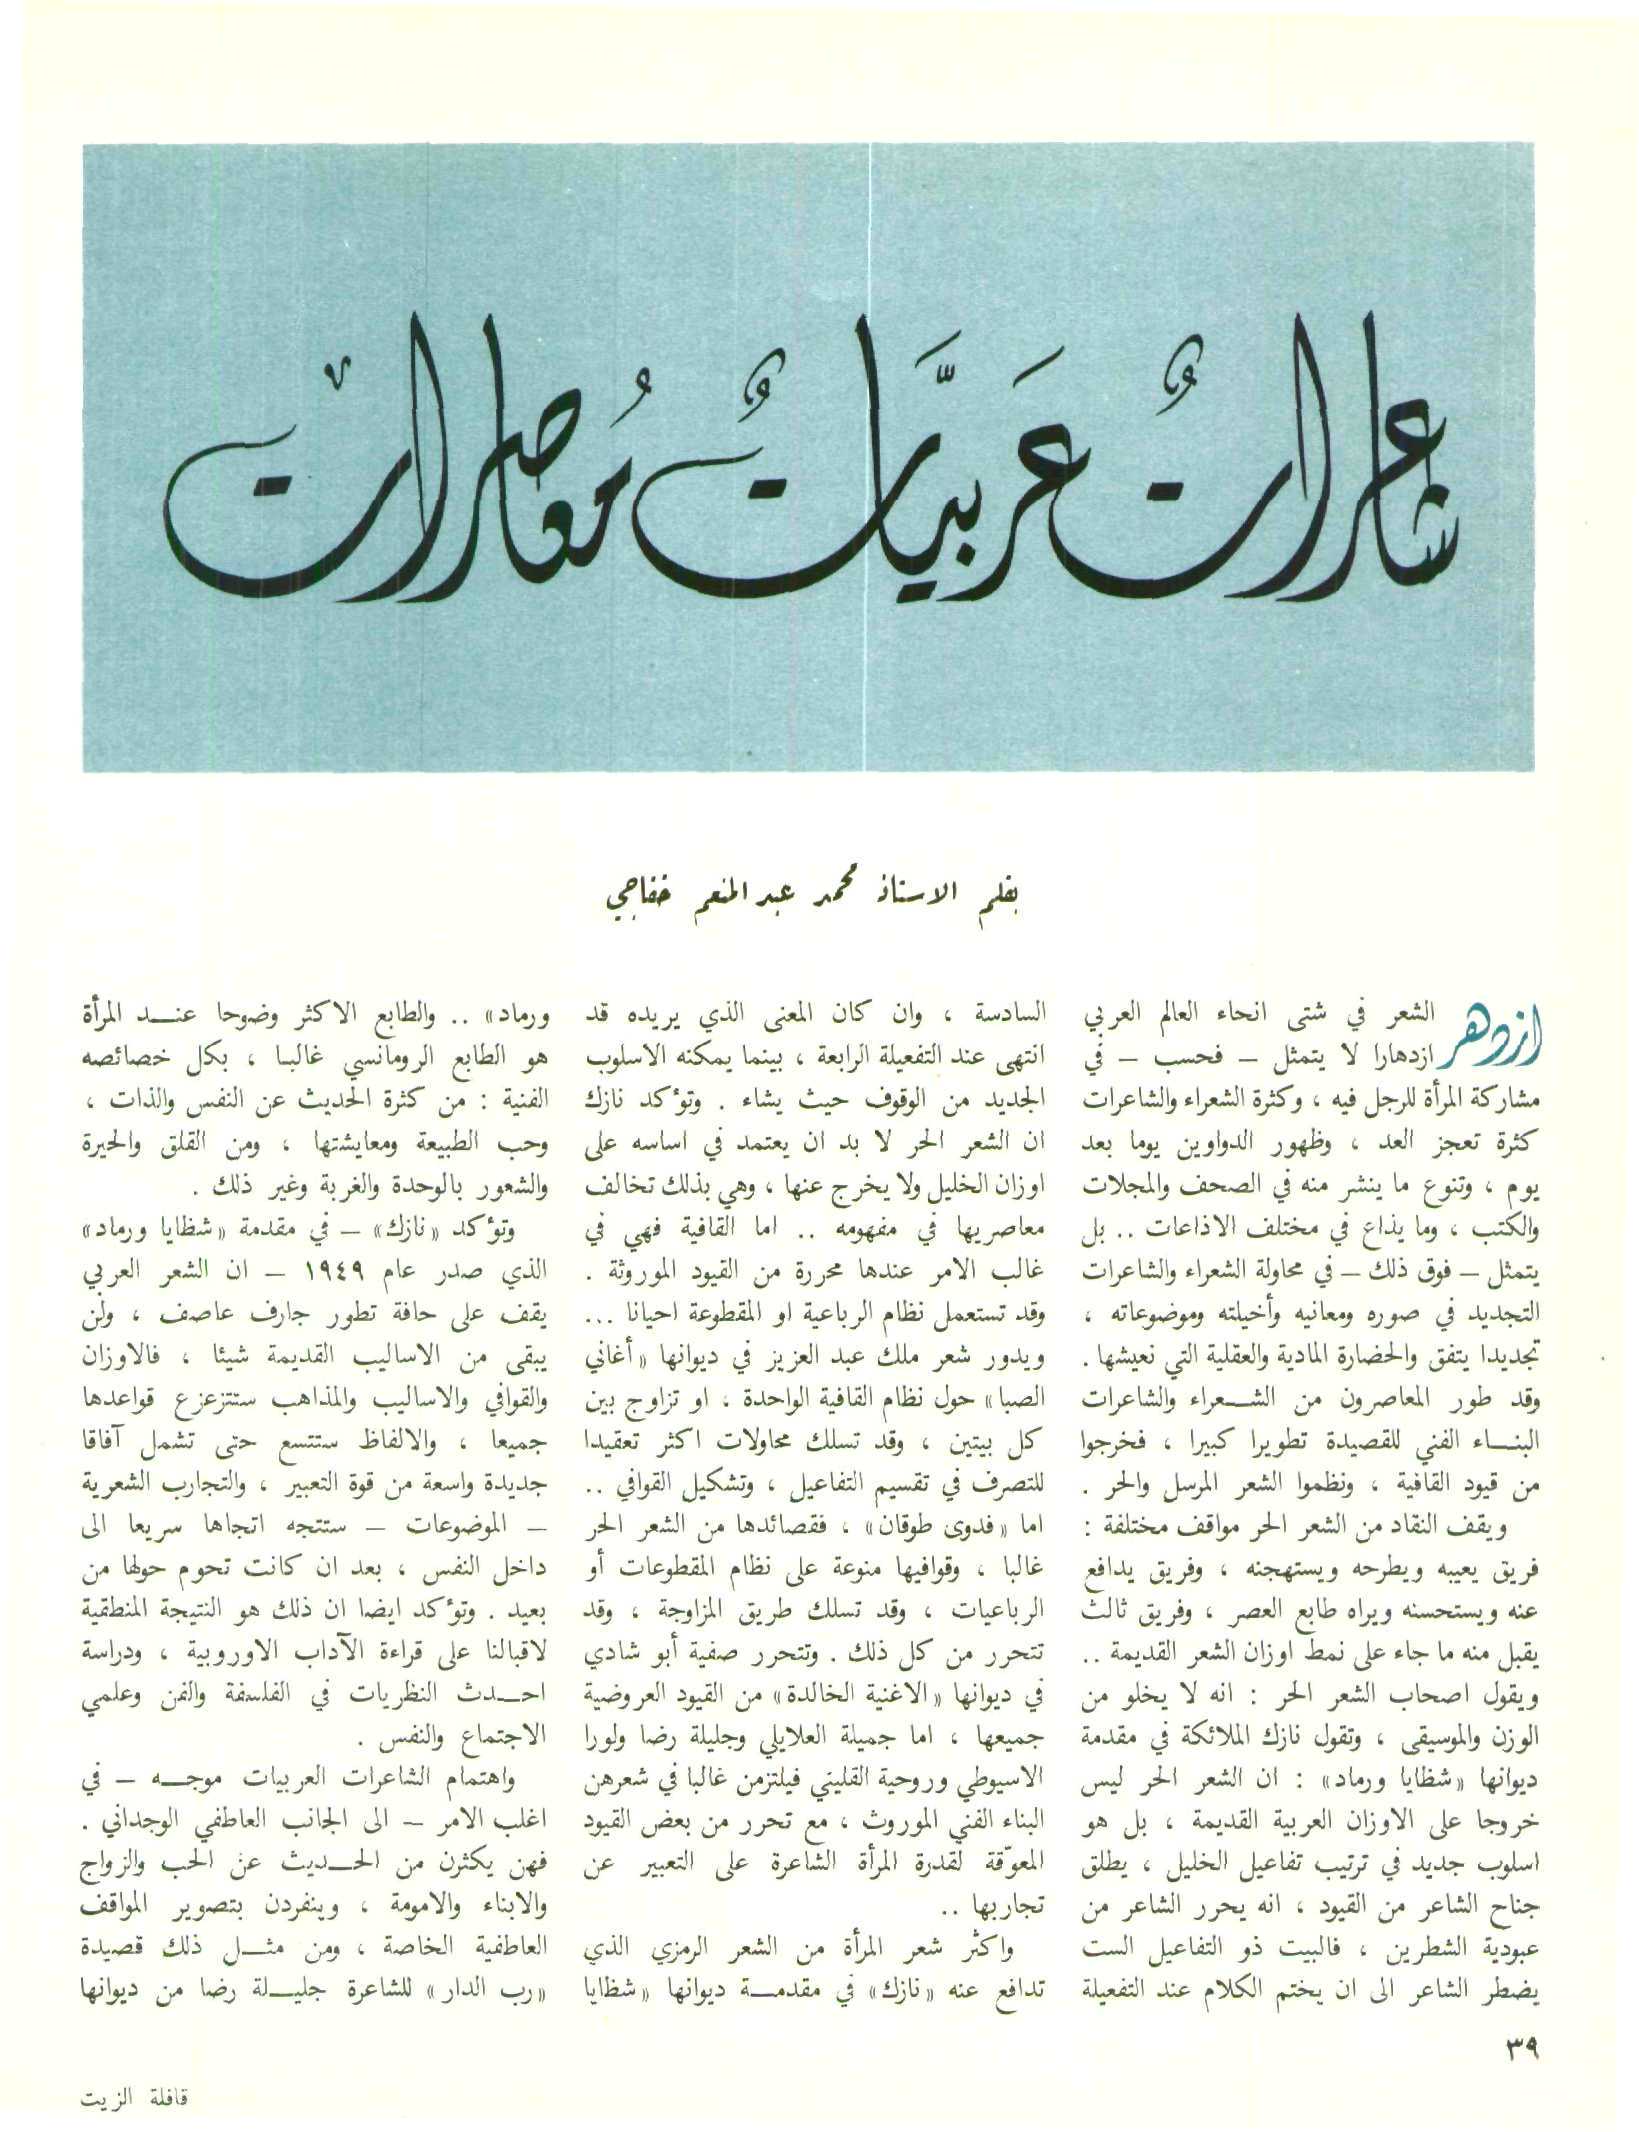 شاعراتٌ عَربيَّاتٌ مُعاصرات
بقلم الاستاذ محمد عبد المنعم خفاجي
ازدهر الشعر في شتى انحاء العالم العربي
ازدهارا لا يتمثل – فحسب – في
مشاركة المرأة للرجل فيه ، وكثرة الشعراء والشاعرات
كثرة تعجز العد ، وظهور الدواوين يوما بعد
يوم ، وتنوع ما ينشر منه في الصحف والمجلات
والكتب ، وما يذاع في مختلف الاذاعات .. بل
يتمثل – فوق ذلك – في محاولة الشعراء والشاعرات
التجديد في صوره ومعانيه وأخيلته وموضوعاته ،
تجديدا يتفق والحضارة المادية والعقلية التي نعيشها .
وقد طور المعاصرون من الشعراء والشاعرات
البناء الفني للقصيدة تطويرا كبيرا ، فخرجوا
من قيود القافية ، ونظموا الشعر المرسل والحر .
ويقف النقاد من الشعر الحر مواقف مختلفة :
فريق يعيبه ويطرحه ويستهجنه ، وفريق يدافع
عنه ويستحسنه ويراه طابع العصر ، وفريق ثالث
يقبل منه ما جاء على نمط اوزان الشعر القديمة ..
ويقول اصحاب الشعر الحر : انه لا يخلو من
الوزن والموسيقى ، وتقول نازك الملائكة في مقدمة
ديوانها «شظايا ورماد» : ان الشعر الحر ليس
خروجا على الاوزان العربية القديمة ، بل هو
اسلوب جديد في ترتيب تفاعيل الخليل ، يطلق
جناح الشاعر من القيود ، انه يحرر الشاعر من
عبودية الشطرين ، فالبيت ذو التفاعيل الست
يضطر الشاعر الى ان يختم الكلام عند التفعيلة
السادسة ، وان كان المعنى الذي يريده قد
انتهى عند التفعيلة الرابعة ، بينما يمكنه الاسلوب
الجديد من الوقوف حيث يشاء . وتؤكد نازك
ان الشعر الحر لا بد ان يعتمد في اساسه على
اوزان الخليل ولا يخرج عنها ، وهي بذلك تخالف
معاصريها في مفهومه .. اما القافية فهي في
غالب الامر عندها محررة من القيود الموروثة .
وقد تستعمل نظام الرباعية او المقطوعة احيانا ...
ويدور شعر ملك عبد العزيز في ديوانها «أغاني
الصبا» حول نظام القافية الواحدة ، او تزاوج بين
كل بيتين ، وقد تسلك محاولات اكثر تعقيدا
للتصرف في تقسيم التفاعيل ، وتشكيل القوافي ..
اما «فدوى طوقان» ، فقصائدها من الشعر الحر
غالبا ، وقوافيها منوعة على نظام المقطوعات أو
الرباعيات ، وقد تسلك طريق المزاوجة ، وقد
تتحرر من كل ذلك . وتتحرر صفية أبو شادي
في ديوانها «الاغنية الخالدة» من القيود العروضية
جميعها ، اما جميلة العلايلي وجليلة رضا ولورا
الاسيوطي وروحية القليني فيلتزمن غالبا في شعرهن
البناء الفني الموروث ، مع تحرر من بعض القيود
المعوّقة لقدرة المرأة الشاعرة على التعبير عن
تجاربها ..
واكثر شعر المرأة من الشعر الرمزي الذي
تدافع عنه «نازك» في مقدمة ديوانها «شظايا
ورماد» .. والطابع الاكثر وضوحا عند المرأة
هو الطابع الرومانسي غالبا ، بكل خصائصه
الفنية : من كثرة الحديث عن النفس والذات ،
وحب الطبيعة ومعايشتها ، ومن القلق والحيرة
والشعور بالوحدة والغربة وغير ذلك .
وتؤكد «نازك» – في مقدمة «شظايا ورماد»
الذي صدر عام ١٩٤٩ – ان الشعر العربي
يقف على حافة تطور جارف عاصف ، ولن
يبقى من الاساليب القديمة شيئا ، فالاوزان
والقوافي والاساليب والمذاهب ستتزعزع قواعدها
جميعا ، والالفاظ ستتسع حتى تشمل آفاقا
جديدة واسعة من قوة التعبير ، والتجارب الشعرية
– الموضوعات – ستتجه اتجاها سريعا الى
داخل النفس ، بعد ان كانت تحوم حولها من
بعيد . وتؤكد ايضا ان ذلك هو النتيجة المنطقية
لاقبالنا على قراءة الآداب الاوروبية ، ودراسة
احدث النظريات في الفلسفة والفن وعلمي
الاجتماع والنفس .
واهتمام الشاعرات العربيات موجه – في
اغلب الامر – الى الجانب العاطفي الوجداني .
فهن يكثرن من الحديث عن الحب والزواج
والابناء والامومة ، وينفردن بتصوير المواقف
العاطفية الخاصة ، ومن مثل ذلك قصيدة
«رب الدار» للشاعرة جليلة رضا من ديوانها
٣٩
قافلة الزيت